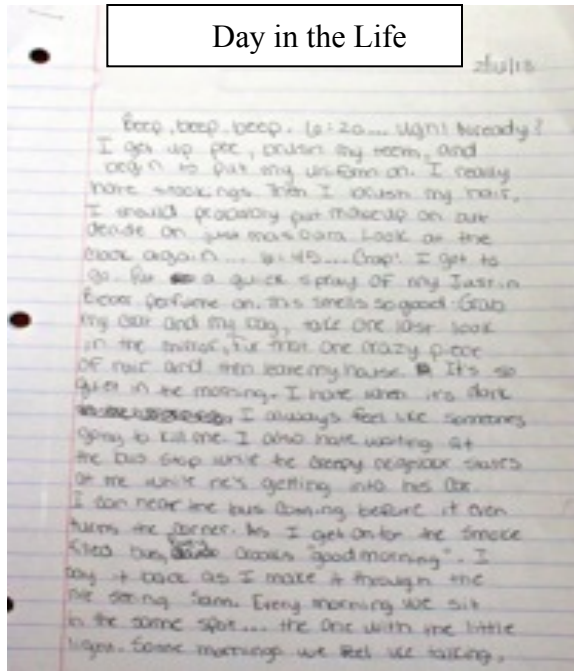 Day in the Life
Beep, beep, beep. 6:20... Ugh! Already?
I get up pee, brush my teeth, and
begin to put my uniform on. I really
hate stockings. Then I brush my hair,
I should probably put makeup on but
decide on just mascara. Look at the
clock again... 6:45... Crap! I got to
go. Put a quick spray of my Justin
Bieber perfume on, this smells so good. Grab
my coat and my bag, take one last look
in the mirror, fix that one crazy piece
of hair and then leave my house. It's so
quiet in the morning. I hate when it's dark
I always feel like someones
going to kill me. I also hate waiting at
the bus stop while the creepy neighbour stares
at me while he's getting into his car.
I can hear the bus coming before it even
turns the corner. As I get on the smoke
filled bus, croaks "good morning". I
say it back as I make it through the
Sam. Every morning we sit
in the same spot... the one with the little
light. Some mornings we feel like talking,